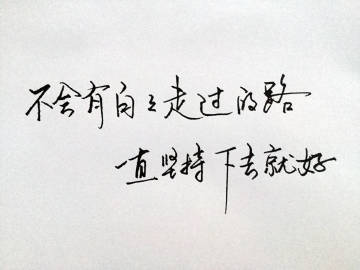 不会有白々走过的路
一直坚持下去就好